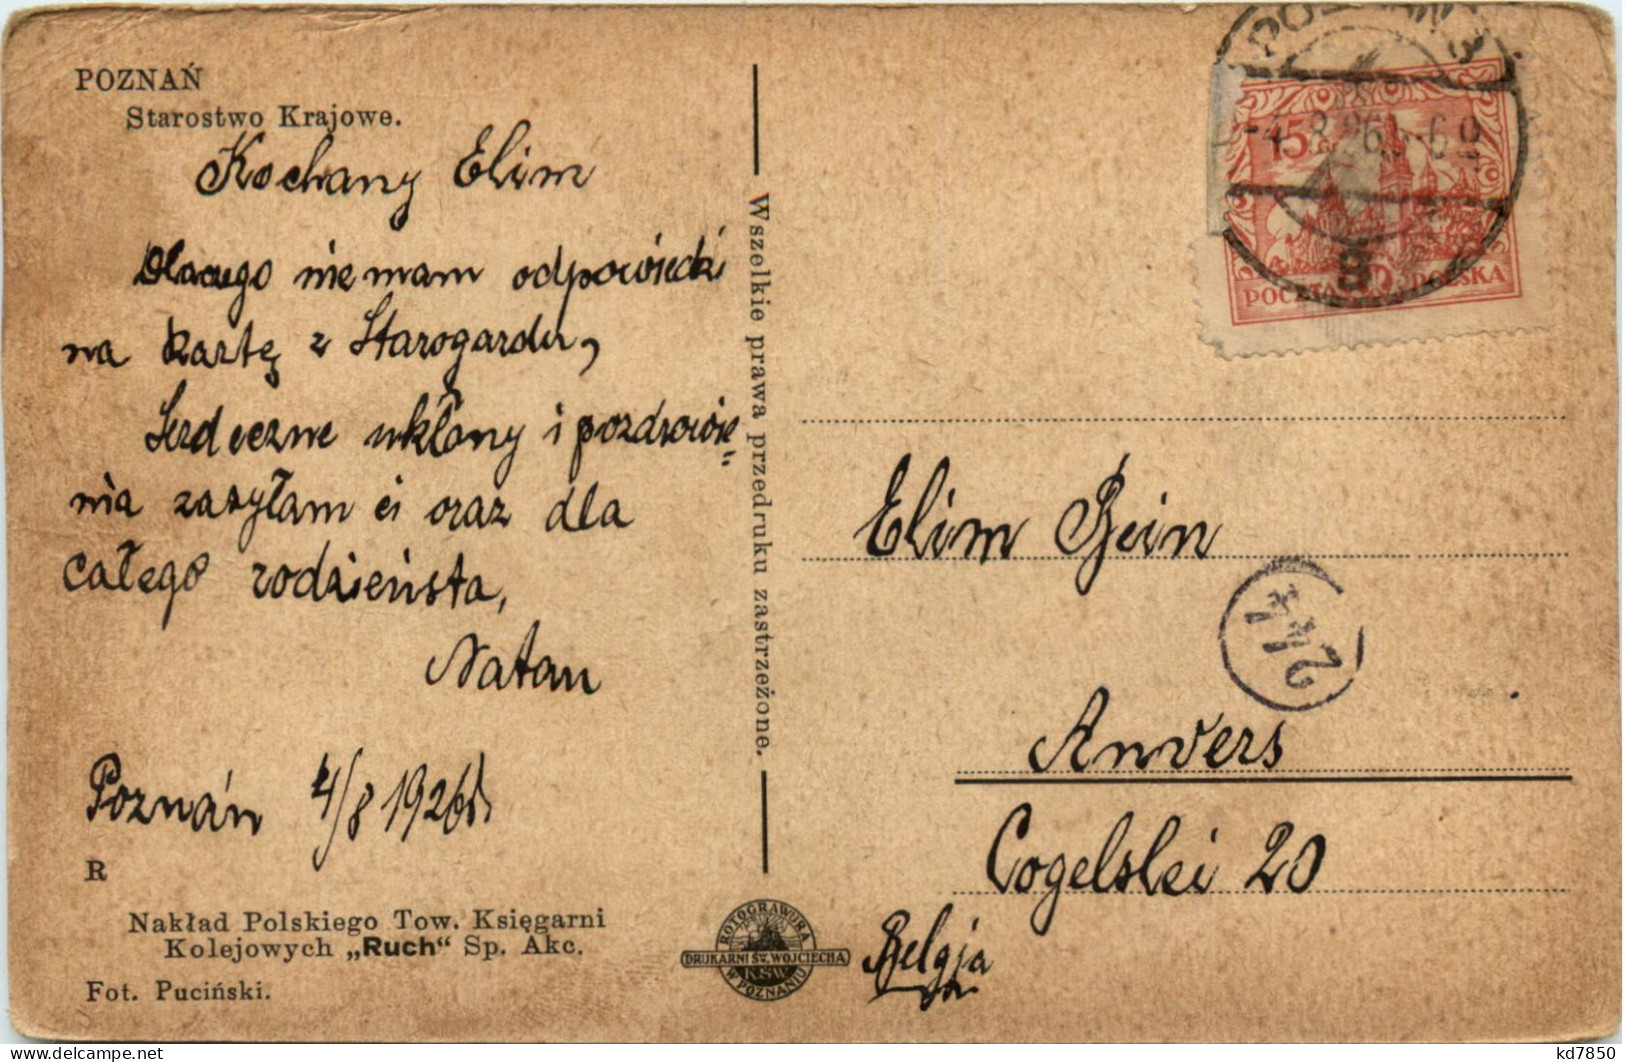 POZNAŃ
Starostwo Krajowe.
Kochany Elim
Dlaczego nie mam odpowiedzi
na kartę z Starogardu,
Serdeczne ukłony i pozdrowie
nia zasyłam ci oraz dla
całego rodzieństa,
Natan
Poznán 4/8 1926
R
Nakład Polskiego Tow. Księgarni
Kolejowych „Ruch" Sp. Akc.
Fot. Puciński.
Wszelkie prawa przedruku zastrzeżone.
ROTOGRAWURA
DRUKARNI ŚW. WOJCIECHA
K.S.W.
W POZNANIU
15
POCZTA POLSKA
-4.8.26
8
Elim Bein
Anvers
Cogelslei 20
Belgja
kd7850